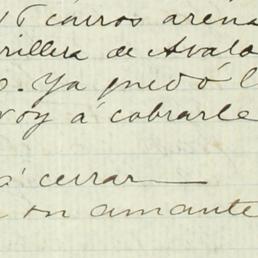 16 carros arena
rillera de Avalo
o. Ya quedó l
voy á cobrarle
á cerrar
un amante